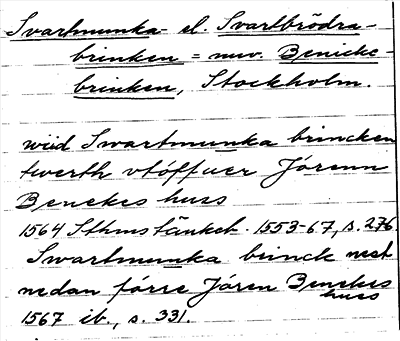 Svartmunka- el. Svartbrödra-
brinken = nuv. Benicke-
brinken, Stockholm.
wiid Swartmunka brincken
twerth vtöffuer Jörenn
Benekes huss
1564 Sthmstänkeb. 1553-67, s. 276.
Swartmunka brinck nest
nedan förre Jören Benekes
huus
1567 ib., s. 331.